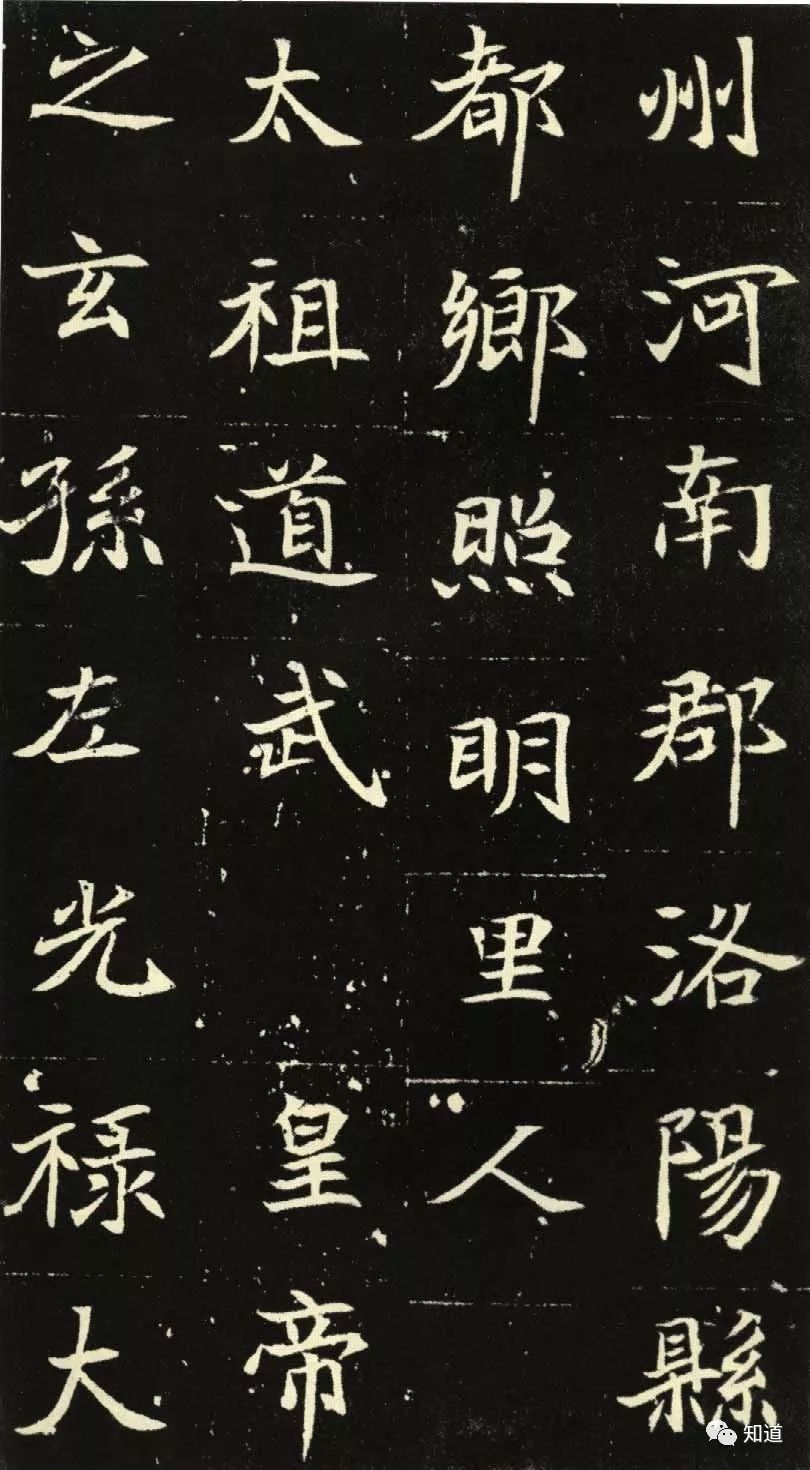 州河南郡洛陽縣
都鄉照明里人
太祖道武皇帝
之玄孫左光祿大
知道